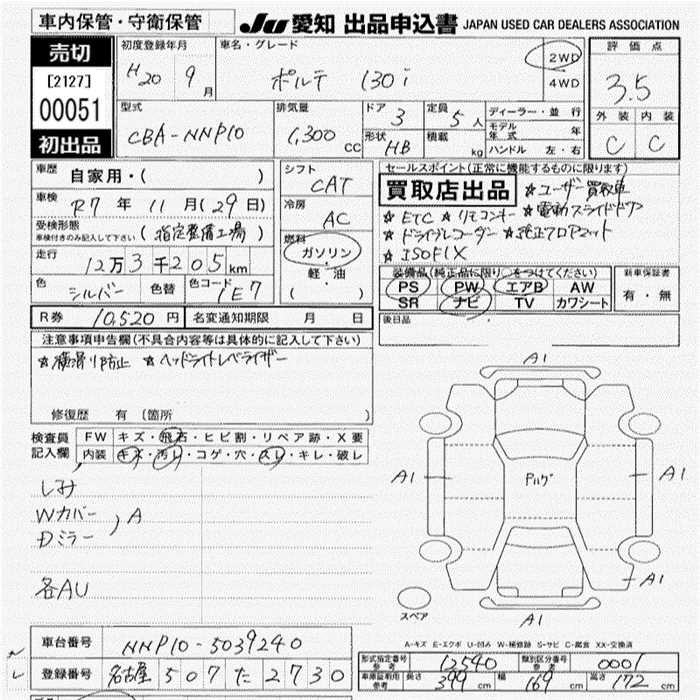 車内保管・守衛保管
JU 愛知 出品申込書 JAPAN USED CAR DEALERS ASSOCIATION
売切
[2127]
00051
初出品
初度登録年月 H20 9月
車名・グレード ポルテ 130i
2WD
4WD
評価点 3.5
外装 内装
C C
型式 CBA-NNP10
排気量 1,300 CC
ドア 3
形状 HB
定員 5人
積載 kg
ディーラー・並行
モデル年式 年
ハンドル 左・右
車歴 自家用・( )
車検 R7年 11月(29日)
受検形態 (指定整備工場)
車検付きのみ記入して下さい
走行 12万3千205km
色 シルバー 色替 色コード 1E7
シフト CAT
冷房 AC
燃料
ガソリン
軽・油
( )
セールスポイント(正常に機能するものに限ります)
買取店出品 ☆ユーザー買取車
☆ETC ☆リモコンキー ☆電動スライドドア
☆ドライブレコーダー ☆純正フロアマット
☆ISOFIX
装備品(純正品に限り○をつけてください)
PS PW エアB AW
SR ナビ TV カワシート
新車保証書
有・無
後日品
R券 10,520円 名変通知期限 月 日
注意事項申告欄(不具合内容等は具体的に記入して下さい)
☆横滑り防止 ☆ヘッドライトレベライザー
修復歴 有 (箇所
検査員記入欄
FW キズ・飛石・ヒビ割・リペア跡・X要
内装 キズ・汚レ・コゲ・穴・スレ・キレ・破レ
しみ
Wカバー
Dミラー ) A
各AU
A1
A1
A1
A1
A1
スペア
A-キズ E-エクボ U-凹み W-補修跡 S-サビ C-腐食 XX-交換済
車台番号 NNP10-5039240
登録番号 名古屋 507 た 2730
形式指定番号 参考 12540 類別区分番号 参考 0001
車庫証明用 参考 長さ 399cm 幅 169cm 高さ 172cm